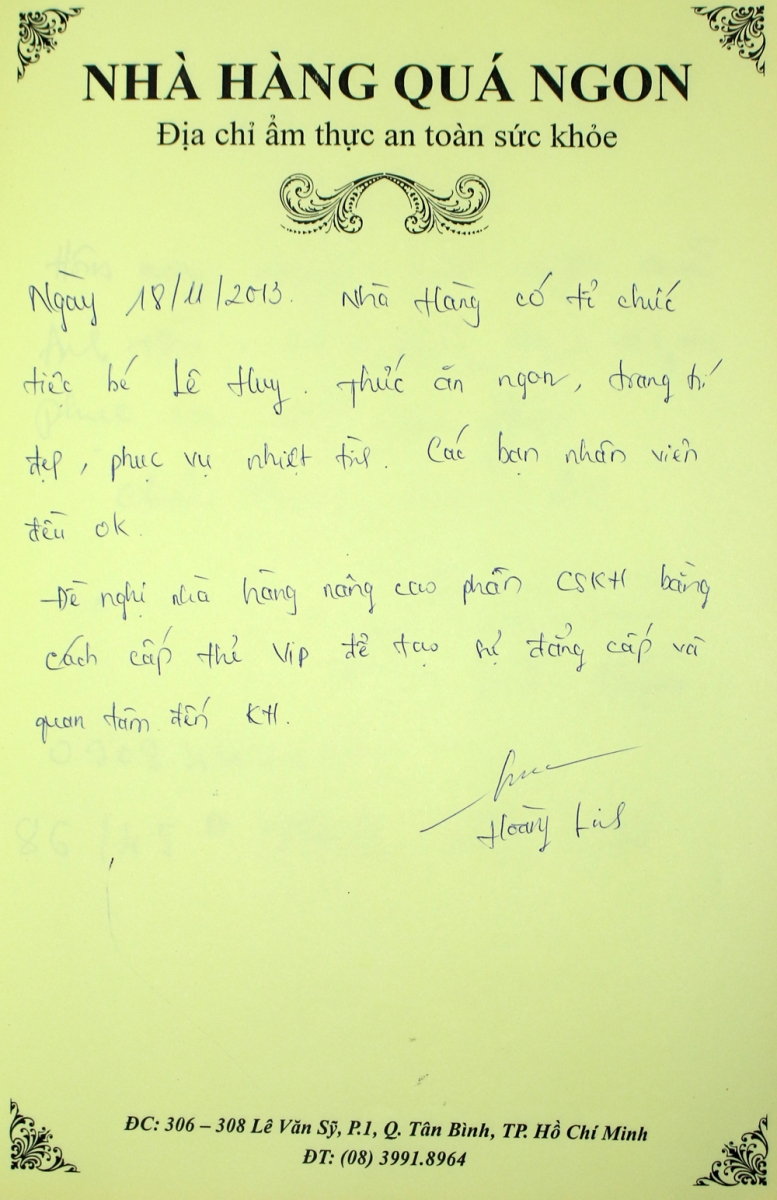 NHÀ HÀNG QUÁ NGON
Địa chỉ ẩm thực an toàn sức khỏe
Ngày 18/11/2013. Nhà Hàng có tỉ chức
tiệc bé Lê Huy. Thức ăn ngon, trang trí
đẹp, phục vụ nhiệt tình. Các bạn nhân viên
đều ok.
Đề nghị nhà hàng nâng cao phần CSKH bằng
cách cấp thẻ Vip để tạo sự đẳng cấp và
quan tâm đến KH.
Hoàng
ĐC: 306 – 308 Lê Văn Sỹ, P.1, Q. Tân Bình, TP. Hồ Chí Minh
ĐT: (08) 3991.8964